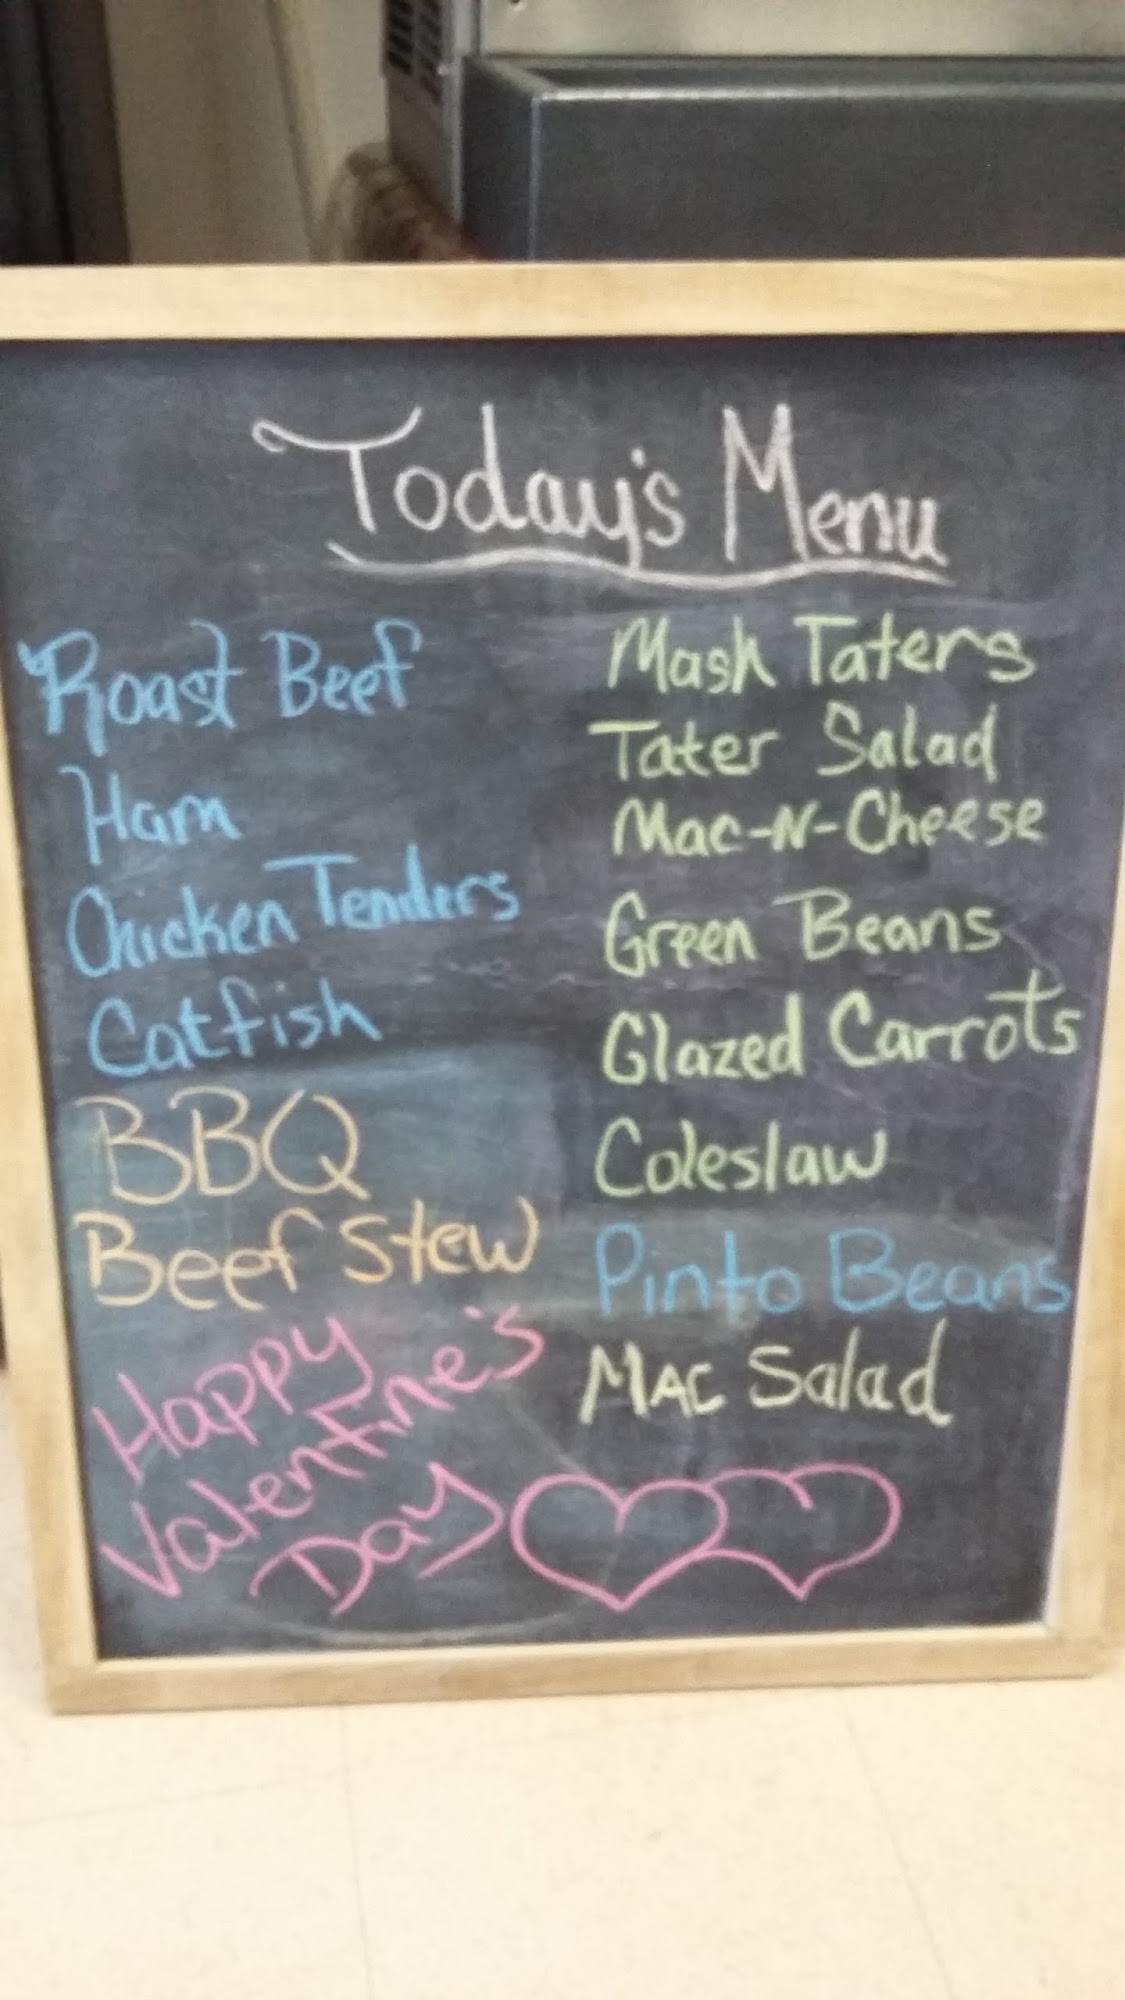 Today's Menu
Roast Beef
Ham
Chicken Tenders
Catfish
BBQ
Beef Stew
Happy
Valentine's
Day
Mash Taters
Tater Salad
Mac-N-Cheese
Green Beans
Glazed Carrots
Coleslaw
Pinto Beans
MAC Salad